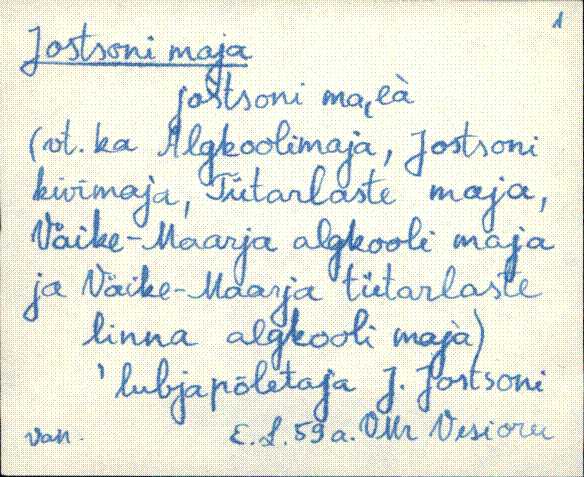 1
Jostsoni maja
jostsoni
(vt. ka Algkoolimaja, Jostsoni
kivimaja, Tütarlaste maja,
Väike-Maarja algkooli maja
ja Väike-Maarja tütarlaste
linna algkooli maja)
' lubjapõletaja J. Jostsoni
van. E. L. 59 a. VMr